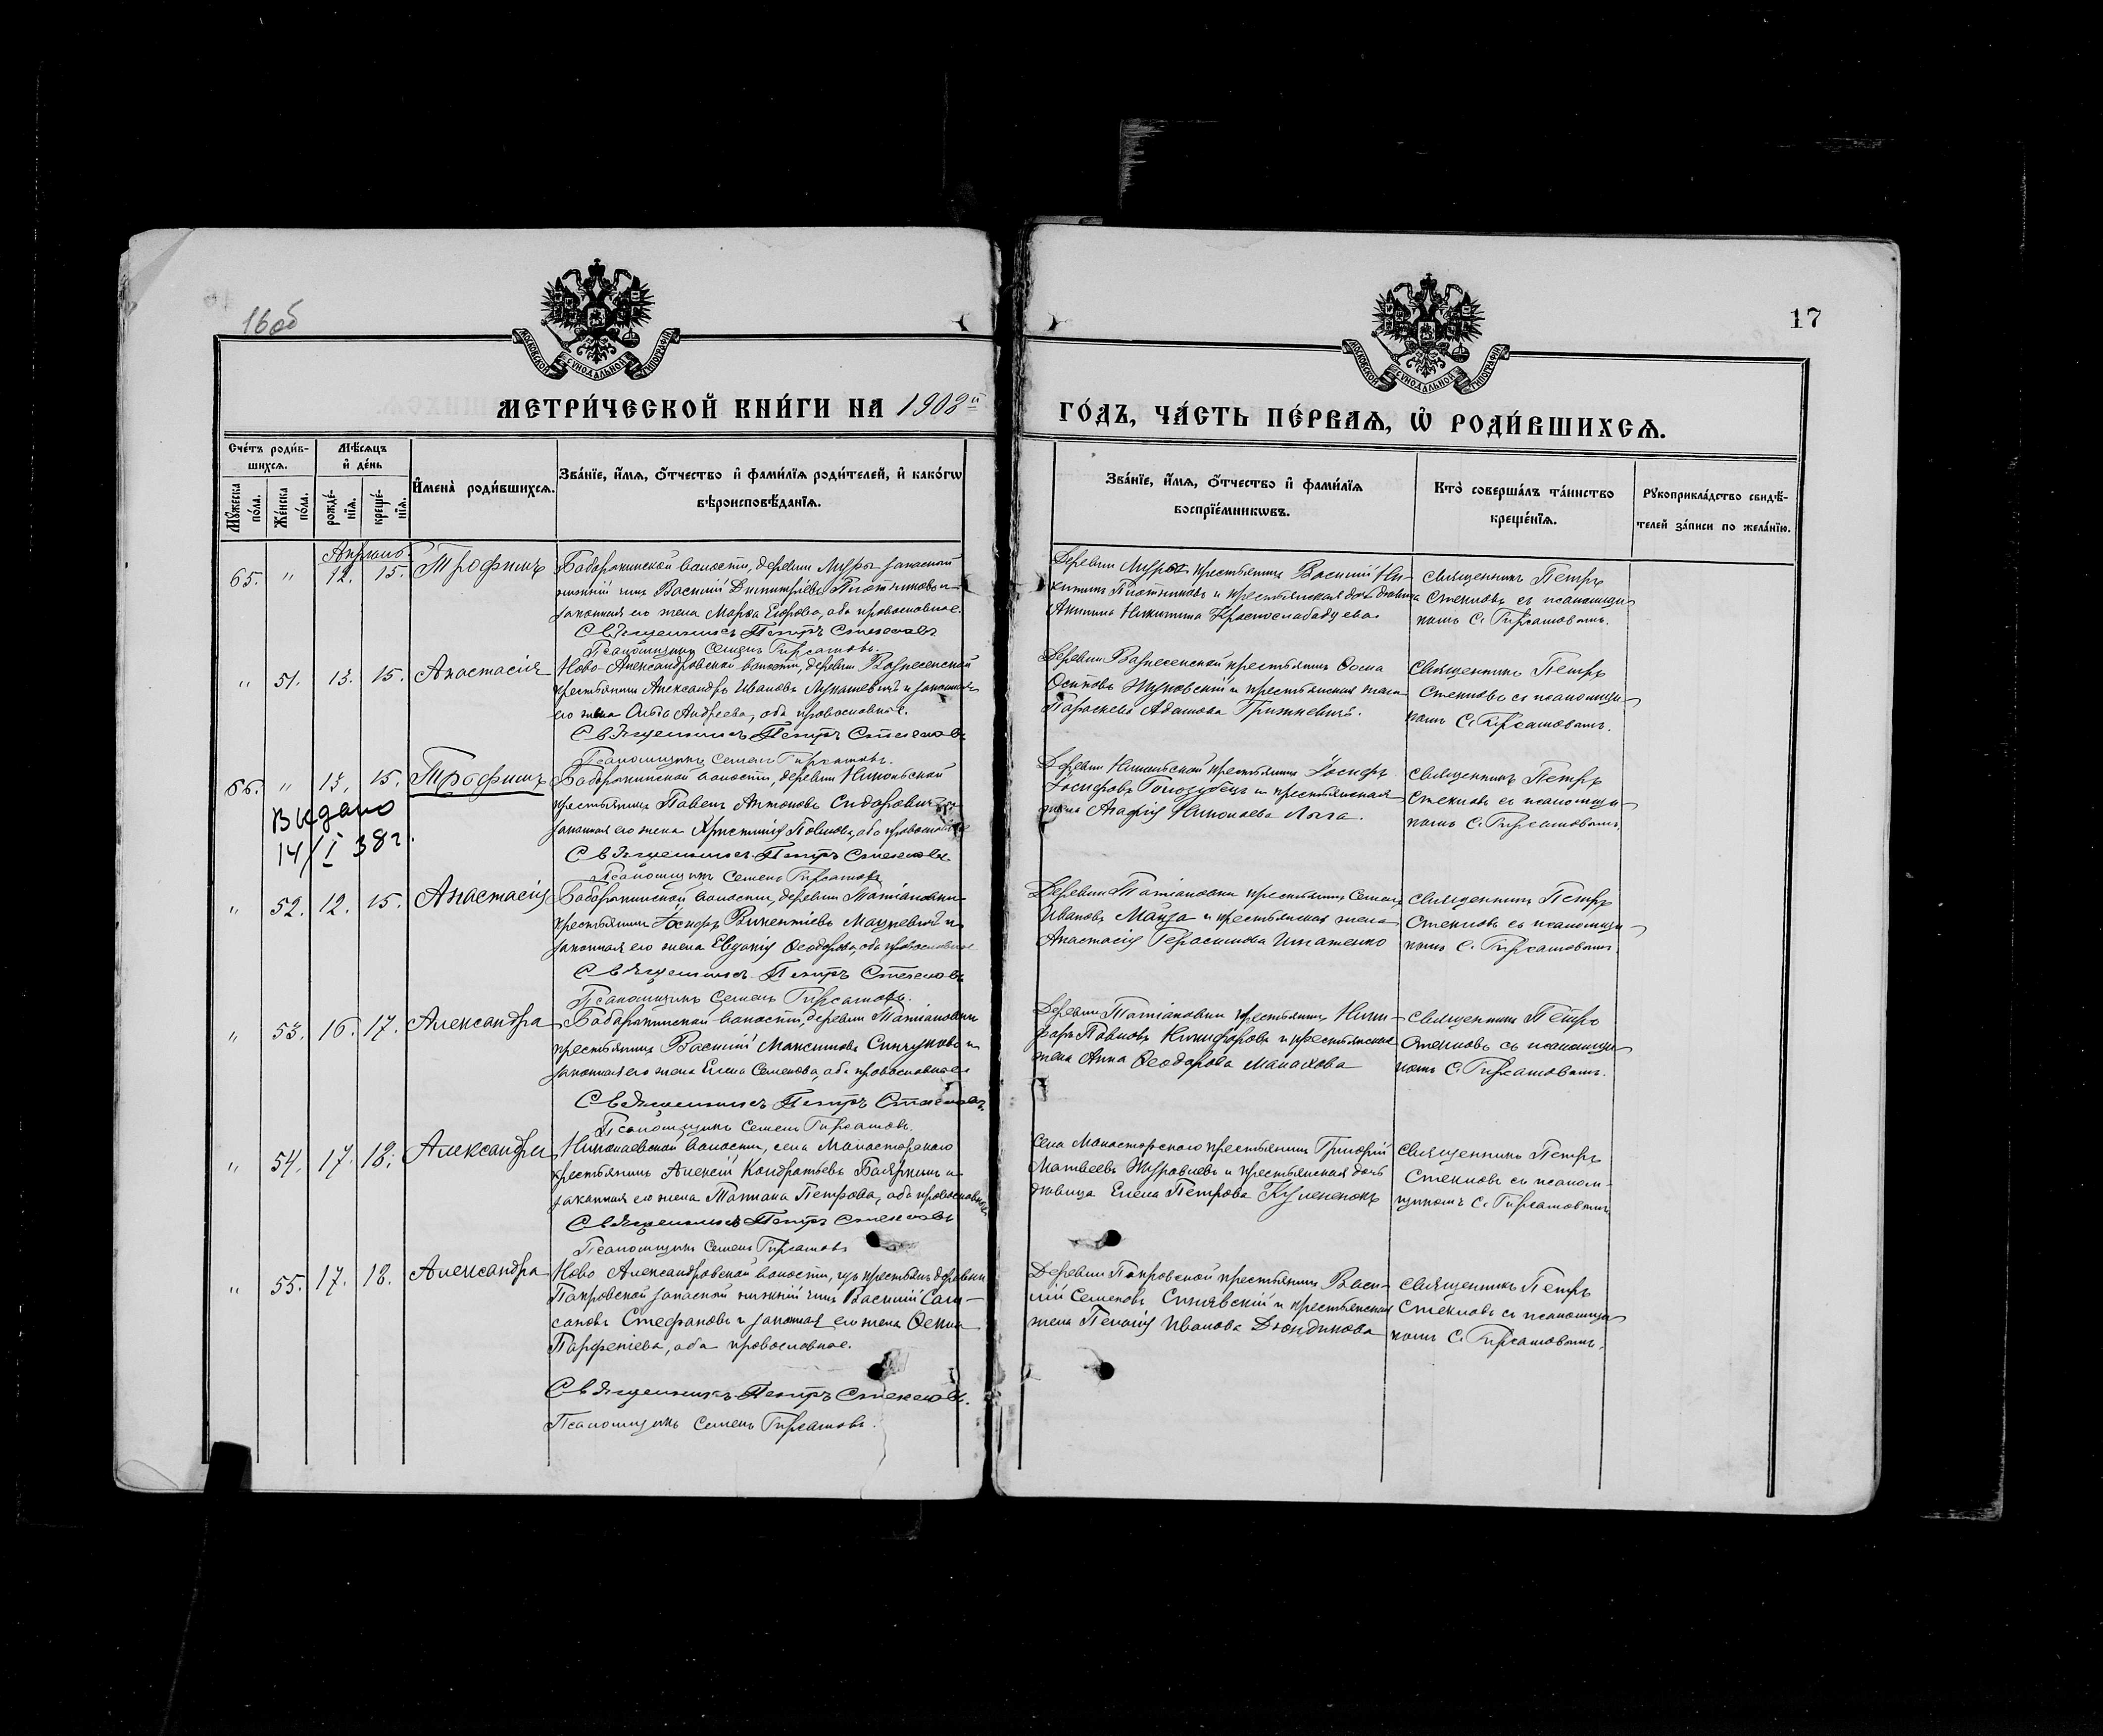 16об
17
МОСКОВСКОЙ СѴНОДАЛЬНОЙ ТИПОГРАФІИ
МОСКОВСКОЙ СѴНОДАЛЬНОЙ ТИПОГРАФІИ
МЕТРИ́ЧЕСКОЙ КНИ́ГИ НА 1908й
ГО́ДЪ, ЧА́СТЬ ПЕ́РВАѦ, Ѡ҆ РОДИ́ВШИХСѦ.
Сче́тъ роди́в-
шихсѧ.
Мꙋ́жеска по́ла.
Же́нска по́ла.
Мѣ́сѧцъ
и҆ де́нь
рожде́-нїѧ.
креще́-нїѧ.
И҆мена̀ роди́вшихсѧ.
Зва́нїе, и҆́мѧ, ѻ҆́тчество и҆ фами́лїѧ роди́телей, и҆ како́гѡ
вѣроисповѣ́данїѧ.
Зва́нїе, и҆́мѧ, ѻ҆́тчество и҆ фами́лїѧ
воспрїе́мникѡвъ.
Кто̀ соверша́лъ та́инство
креще́нїѧ.
Рꙋкоприкла́дство свидѣ́-
телей за́писи по жела́нїю.
Апрѣль.
65. " 12. 15. Трофимъ
волости, деревни Муры запасной
нижній чинъ Василій Димитріевъ Плотниковъ и
законная его жена Марѳа Егорова, оба православные.
Священникъ Петръ Стекловъ
Псаломщикъ Семенъ
Деревни Муры крестьянинъ Василій Ни-
китинъ Плотниковъ и крестьянская дочь дѣвица
Акилина Никитина Краснослабодцева
Священникъ Петръ
Стекловъ съ псаломщи-
комъ С.
" 51. 13. 15. Анастасія
Ново-Александровской волости, деревни Вознесенской
крестьянинъ Александръ Ивановъ Лукашевичъ и законная
его жена Ольга Андреева, оба православные.
Священникъ Петръ Стекловъ
Псаломщикъ Семенъ
Деревни Вознесенской крестьянинъ Ѳома
Осиповъ Жуковскій и крестьянская жена
Параскева Адамова Гришкевичъ.
Священникъ Петръ
Стекловъ съ псаломщи-
комъ С.
66. " 13. 15. Трофимъ
Выдано
14/I 38 г.
волости, деревни Никольской
крестьянинъ Павелъ Антоновъ Сидоровичъ и
законная его жена Христинія Павлова, оба православные
Священникъ Петръ Стекловъ
Псаломщикъ Семенъ
Деревни Никольской крестьянинъ Іосифъ
Іосифовъ Голозубецъ и крестьянская
жена Агафія Николаева
Священникъ Петръ
Стекловъ съ псаломщи-
комъ С.
" 52. 12. 15. Анастасія
волости, деревни Татіановки
крестьянинъ Іосифъ Викентіевъ Мацкевичъ и
законная его жена Евгенія Ѳеодорова, оба православные
Священникъ Петръ Стекловъ
Псаломщикъ Семенъ
Деревни Татіановки крестьянинъ Семенъ
Ивановъ и крестьянская жена
Анастасія Герасимова Игнатенко
Священникъ Петръ
Стекловъ съ псаломщи-
комъ С.
" 53. 16. 17. Александра
волости, деревни Татіановки
крестьянинъ Василій Максимовъ и
законная его жена Елена Семенова, оба православные
Священникъ Петръ Стекловъ
Псаломщикъ Семенъ
Деревни Татіановки крестьянинъ Ники-
форъ Павловъ Никифоровъ и крестьянская
жена Анна Ѳеодорова Малахова
Священникъ Петръ
Стекловъ съ псаломщи-
комъ С.
" 54. 17. 18. Александра
Николаевской волости, села Монастырскаго
крестьянинъ Алексій Кондратьевъ Бояркинъ и
законная его жена Татіана Петрова, оба православные
Священникъ Петръ Стекловъ
Псаломщикъ Семенъ
Села Монастырскаго крестьянинъ Григорій
Матвеевъ Журавлевъ и крестьянская дочь
дѣвица Елена Петрова
Священникъ Петръ
Стекловъ съ псалом-
щикомъ С.
" 55. 17. 18. Александра
Ново Александровской волости, изъ крестьянъ деревни
Покровской запасной нижній чинъ Василій Сам-
соновъ Стефановъ и законная его жена Ѳекла
Парфеніева, оба православные.
Священникъ Петръ Стекловъ.
Псаломщикъ Семенъ
Деревни Покровской крестьянинъ Васи-
лій Семеновъ Синявскій и крестьянская
жена Пелагія Иванова Дюндикова
Священникъ Петръ
Стекловъ съ псаломщи-
комъ С.